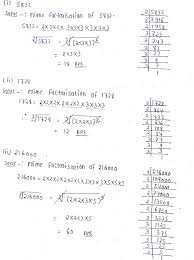 (i) 5832
Soln - : Prime factorisation of 5832-
5832 = 2×2×2×3×3×3×3×3×3
∛5832 = ∛(2×3×3)³
= 2×3×3
= 18 Ans
2 5832
2 2916
2 1458
3 729
3 243
3 81
3 27
3 9
3 3
1
(ii) 1728
Soln - : Prime factorisation of 1728
1728 = 2×2×2×2×2×2×3×3×3
∛1728 = ∛(2×2×3)³
= 2×2×3
= 12 Ans
2 1728
2 864
2 432
2 216
2 108
2 54
3 27
3 9
3 3
1
(iii) 216000
Soln - : Prime factorisation of 216000
216000 = 2×2×2×2×2×2×3×3×3×5×5×5
∛216000 = ∛(2×2×3×5)³
= 2×2×3×5
= 60 Ans
2 216000
2 108000
2 54000
2 27000
2 13500
2 6750
3 3375
3 1125
3 375
5 125
5 25
5 5
1